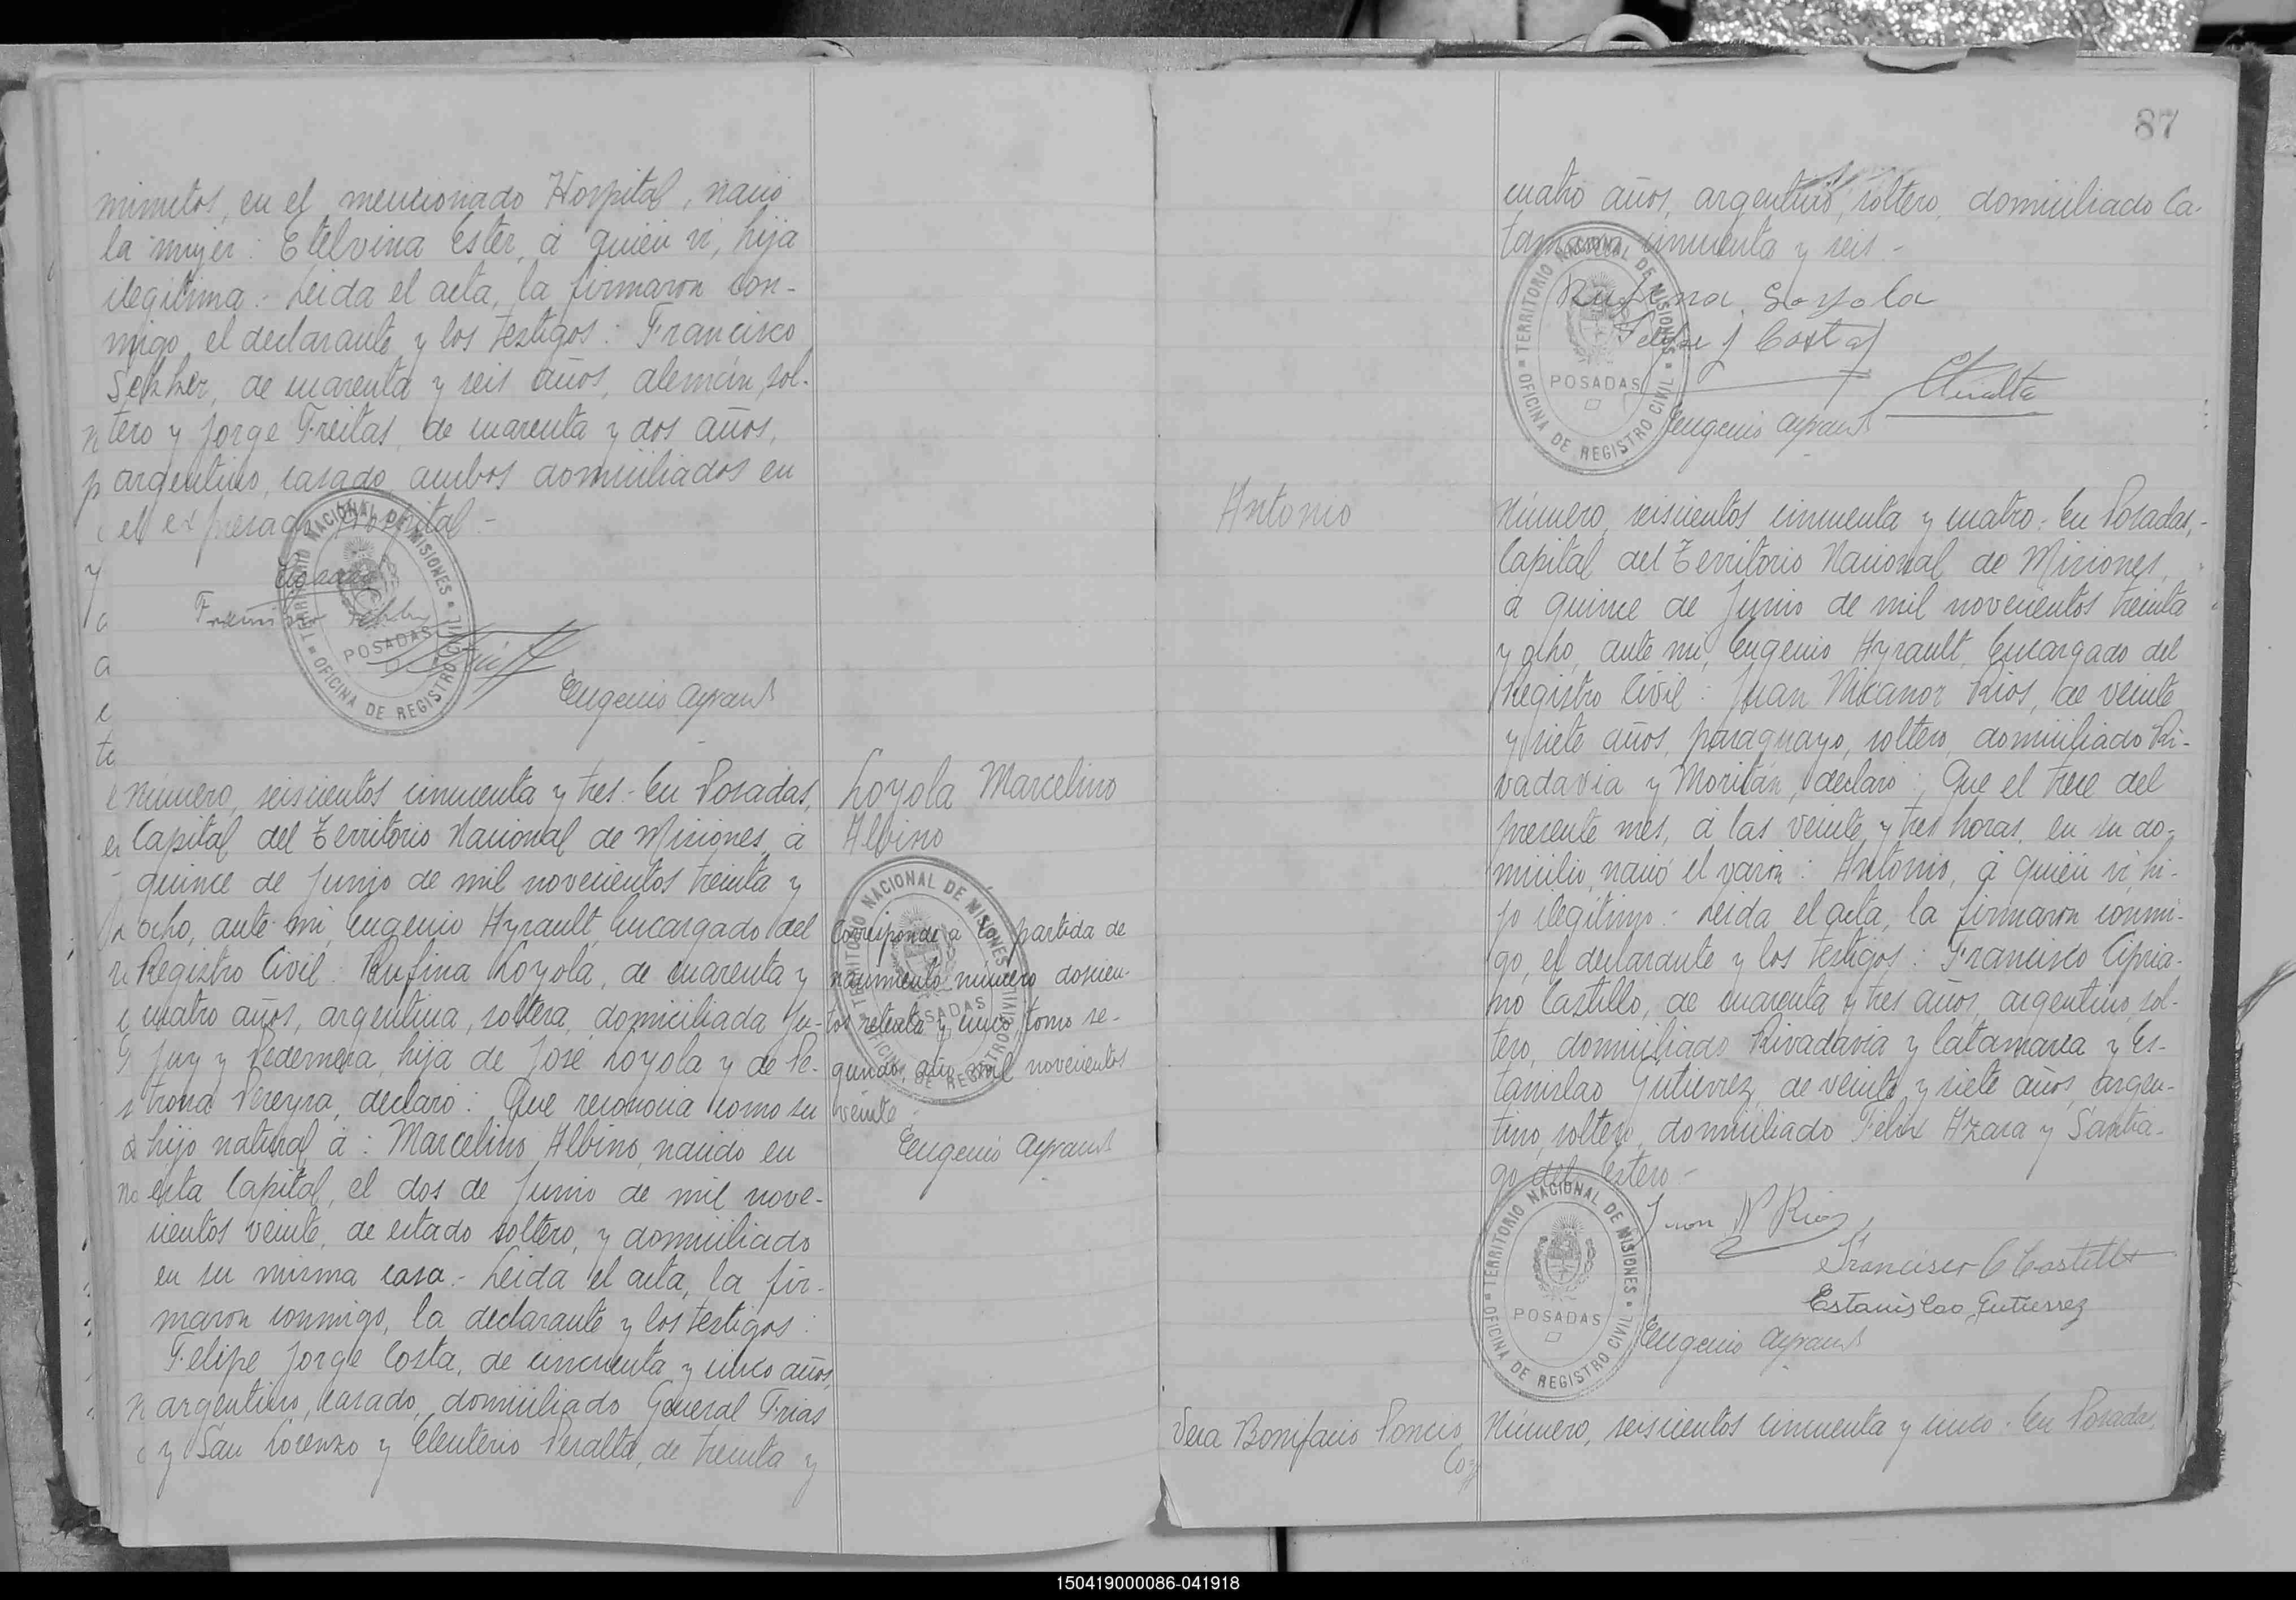 minutos, en el mencionado Hospital, nació
la mujer: Etelvina Ester, á quién vi, hija
ilegítima.- Leida el acta, la firmaron con-
migo, el declarante y los testigos: Francisco
Sehher, de cuarenta y seis años, alemán, sol-
tero y Jorge Freitas, de cuarenta y dos años,
argentino, casado, ambos domiciliados en
el expresado Hospital.-
TERRITORIO NACIONAL DE MISIONES
POSADAS
OFICINA DE REGISTRO CIVIL
Eugenio Ayrault
Número, seiscientos cincuenta y tres.- En Posadas,
Capital del Territorio Nacional de Misiones, á
quince de Junio de mil novecientos treinta y
ocho, ante mí, Eugenio Ayrault, Encargado del
Registro Civil: Rufina Loyola, de cuarenta y
cuatro años, argentina, soltera, domiciliada Ju-
juy y Pedernera, hija de José Loyola y de Pe-
trona Pereyra, declaró: Que reconocia como su
hijo natural á: Marcelino Albino, nacido en
esta Capital, el dos de Junio de mil nove-
cientos veinte, de estado soltero, y domiciliado
en su misma casa.- Leida el acta, la fir-
maron conmigo, la declarante y los testigos:
Felipe Jorge Costa, de cincuenta y cinco años,
argentino, casado, domiciliado General Frias
y San Lorenzo y Eleuterio Peralta, de treinta y
Loyola Marcelino
Albino
TERRITORIO NACIONAL DE MISIONES
POSADAS
OFICINA DE REGISTRO CIVIL
Corresponde a la partida de
nacimiento número doscien-
tos setenta y cinco, tomo se-
gundo, año mil novecientos
veinte.-
Eugenio Ayrault
87
cuatro años, argentino, soltero, domiciliado Ca-
tamarca cincuenta y seis.-
TERRITORIO NACIONAL DE MISIONES
POSADAS
OFICINA DE REGISTRO CIVIL
Rufina Loyola
Felipe J Costa
Eugenio Ayrault
Antonio
Número, seiscientos cincuenta y cuatro.- En Posadas,
Capital del Territorio Nacional de Misiones,
á quince de Junio de mil novecientos treinta
y ocho, ante mí, Eugenio Ayrault, Encargado del
Registro Civil: Juan Nicanor Rios, de veinte
y siete años, paraguayo, soltero, domiciliado Ri-
vadavia y Moritán, declaró: Que el trece del
presente mes, á las veinte y tres horas, en su do-
micilio, nació el varón: Antonio, á quién vi, hi-
jo ilegítimo.- Leida el acta, la firmaron conmi-
go, el declarante y los testigos: Francisco Cipria-
no Castillo, de cuarenta y tres años, argentino, sol-
tero, domiciliado Rivadavia y Catamarca y Es-
tanislao Gutierrez, de veinte y siete años, argen-
tino, soltero, domiciliado Felix Azara y Santia-
go del Estero.-
TERRITORIO NACIONAL DE MISIONES
POSADAS
OFICINA DE REGISTRO CIVIL
Juan N Rios
Francisco C Castillo
Estanislao Gutierrez
Eugenio Ayrault
Vera Bonifacio Poncio
Número, seiscientos cincuenta y cinco.- En Posadas,
150419000086-041918